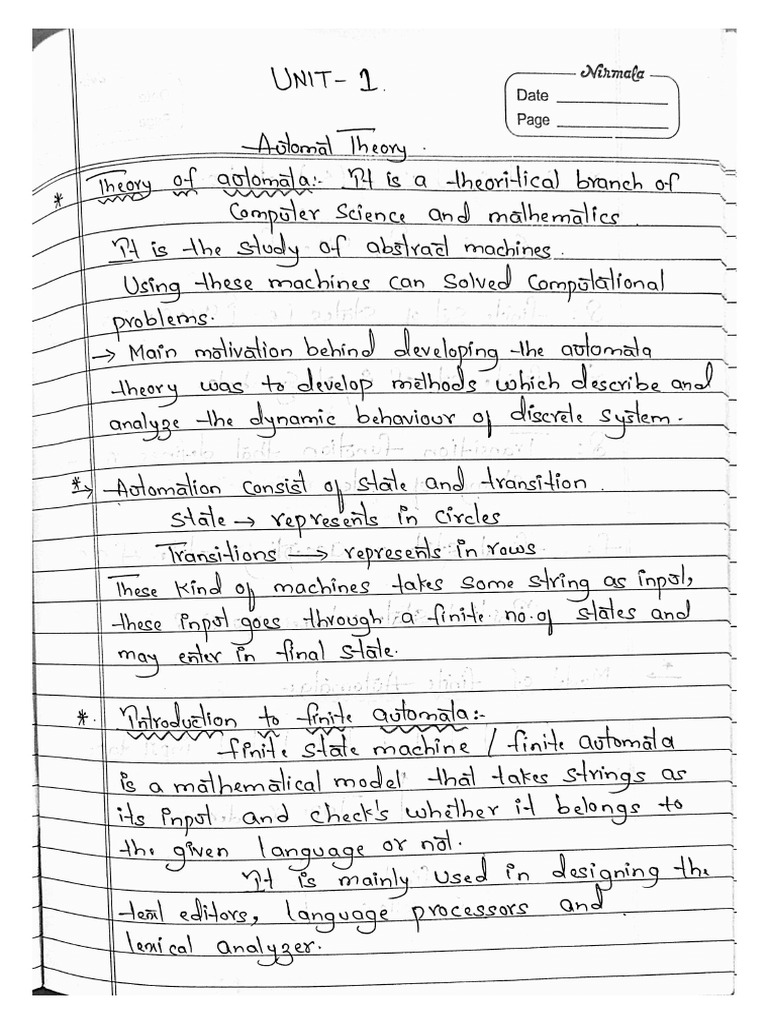 UNIT- 1.
Nirmala
Date
Page
Automal Theory.
* Theory of automata:- It is a theoritical branch of
Computer Science and mathematics.
It is the study of abstract machines.
Using these machines can solved Computational
problems.
→ Main motivation behind developing the automata
theory was to develop methods which describe and
analyze the dynamic behaviour of discrete system.
*→ Automation consist of state and transition.
State → represents in circles
Transitions → represents in rows
These kind of machines takes some string as input,
these input goes through a finite no. of states and
may enter in final state.
*. Introduction to finite automata:-
finite state machine / finite automata
is a mathematical model that takes strings as
its input and check's whether it belongs to
the given language or not.
It is mainly used in designing the
text editors, language processors and
lexical analyzer.